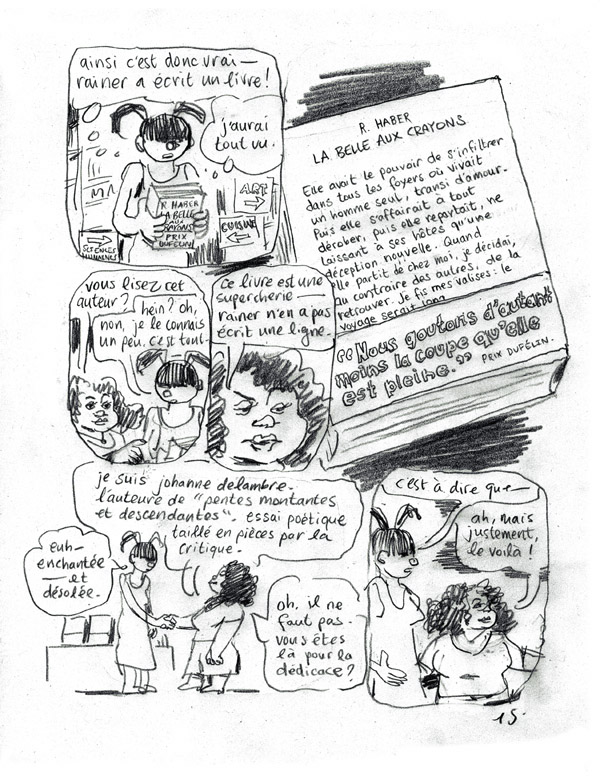 ainsi c'est donc vrai—
rainer a écrit un livre!
j'aurai
tout vu.
ART
CUISINE
SCIENCES
HUMAINES
R. HABER
LA BELLE
AUX
CRAYONS
PRIX
DUFÉLIN
R. HABER
LA BELLE AUX CRAYONS
Elle avait le pouvoir de s'infiltrer
dans tous les foyers où vivait
un homme seul, transi d'amour.
Puis elle s'affairait à tout
dérober, puis elle repartait, ne
laissant à ses hôtes qu'une
déception nouvelle. Quand
elle partit de chez moi, je décidai,
au contraire des autres, de la
retrouver. Je fis mes valises: le
voyage serait long
"Nous goutons d'autant
moins la coupe qu'elle
est pleine." PRIX DUFÉLIN.
vous lisez cet
auteur?
hein? oh,
non, je le connais
un peu. c'est tout.
ce livre est une
supercherie—
rainer n'en a pas
écrit une ligne.
je suis johanne delambre.
l'auteure de "pentes montantes
et descendantes". essai poétique
taillé en pièces par la
critique.
euh—
enchantée
— et
désolée.
oh, il ne
faut pas.
vous êtes
là pour la
dédicace?
c'est à dire que—
ah, mais
justement,
le voilà!
15.